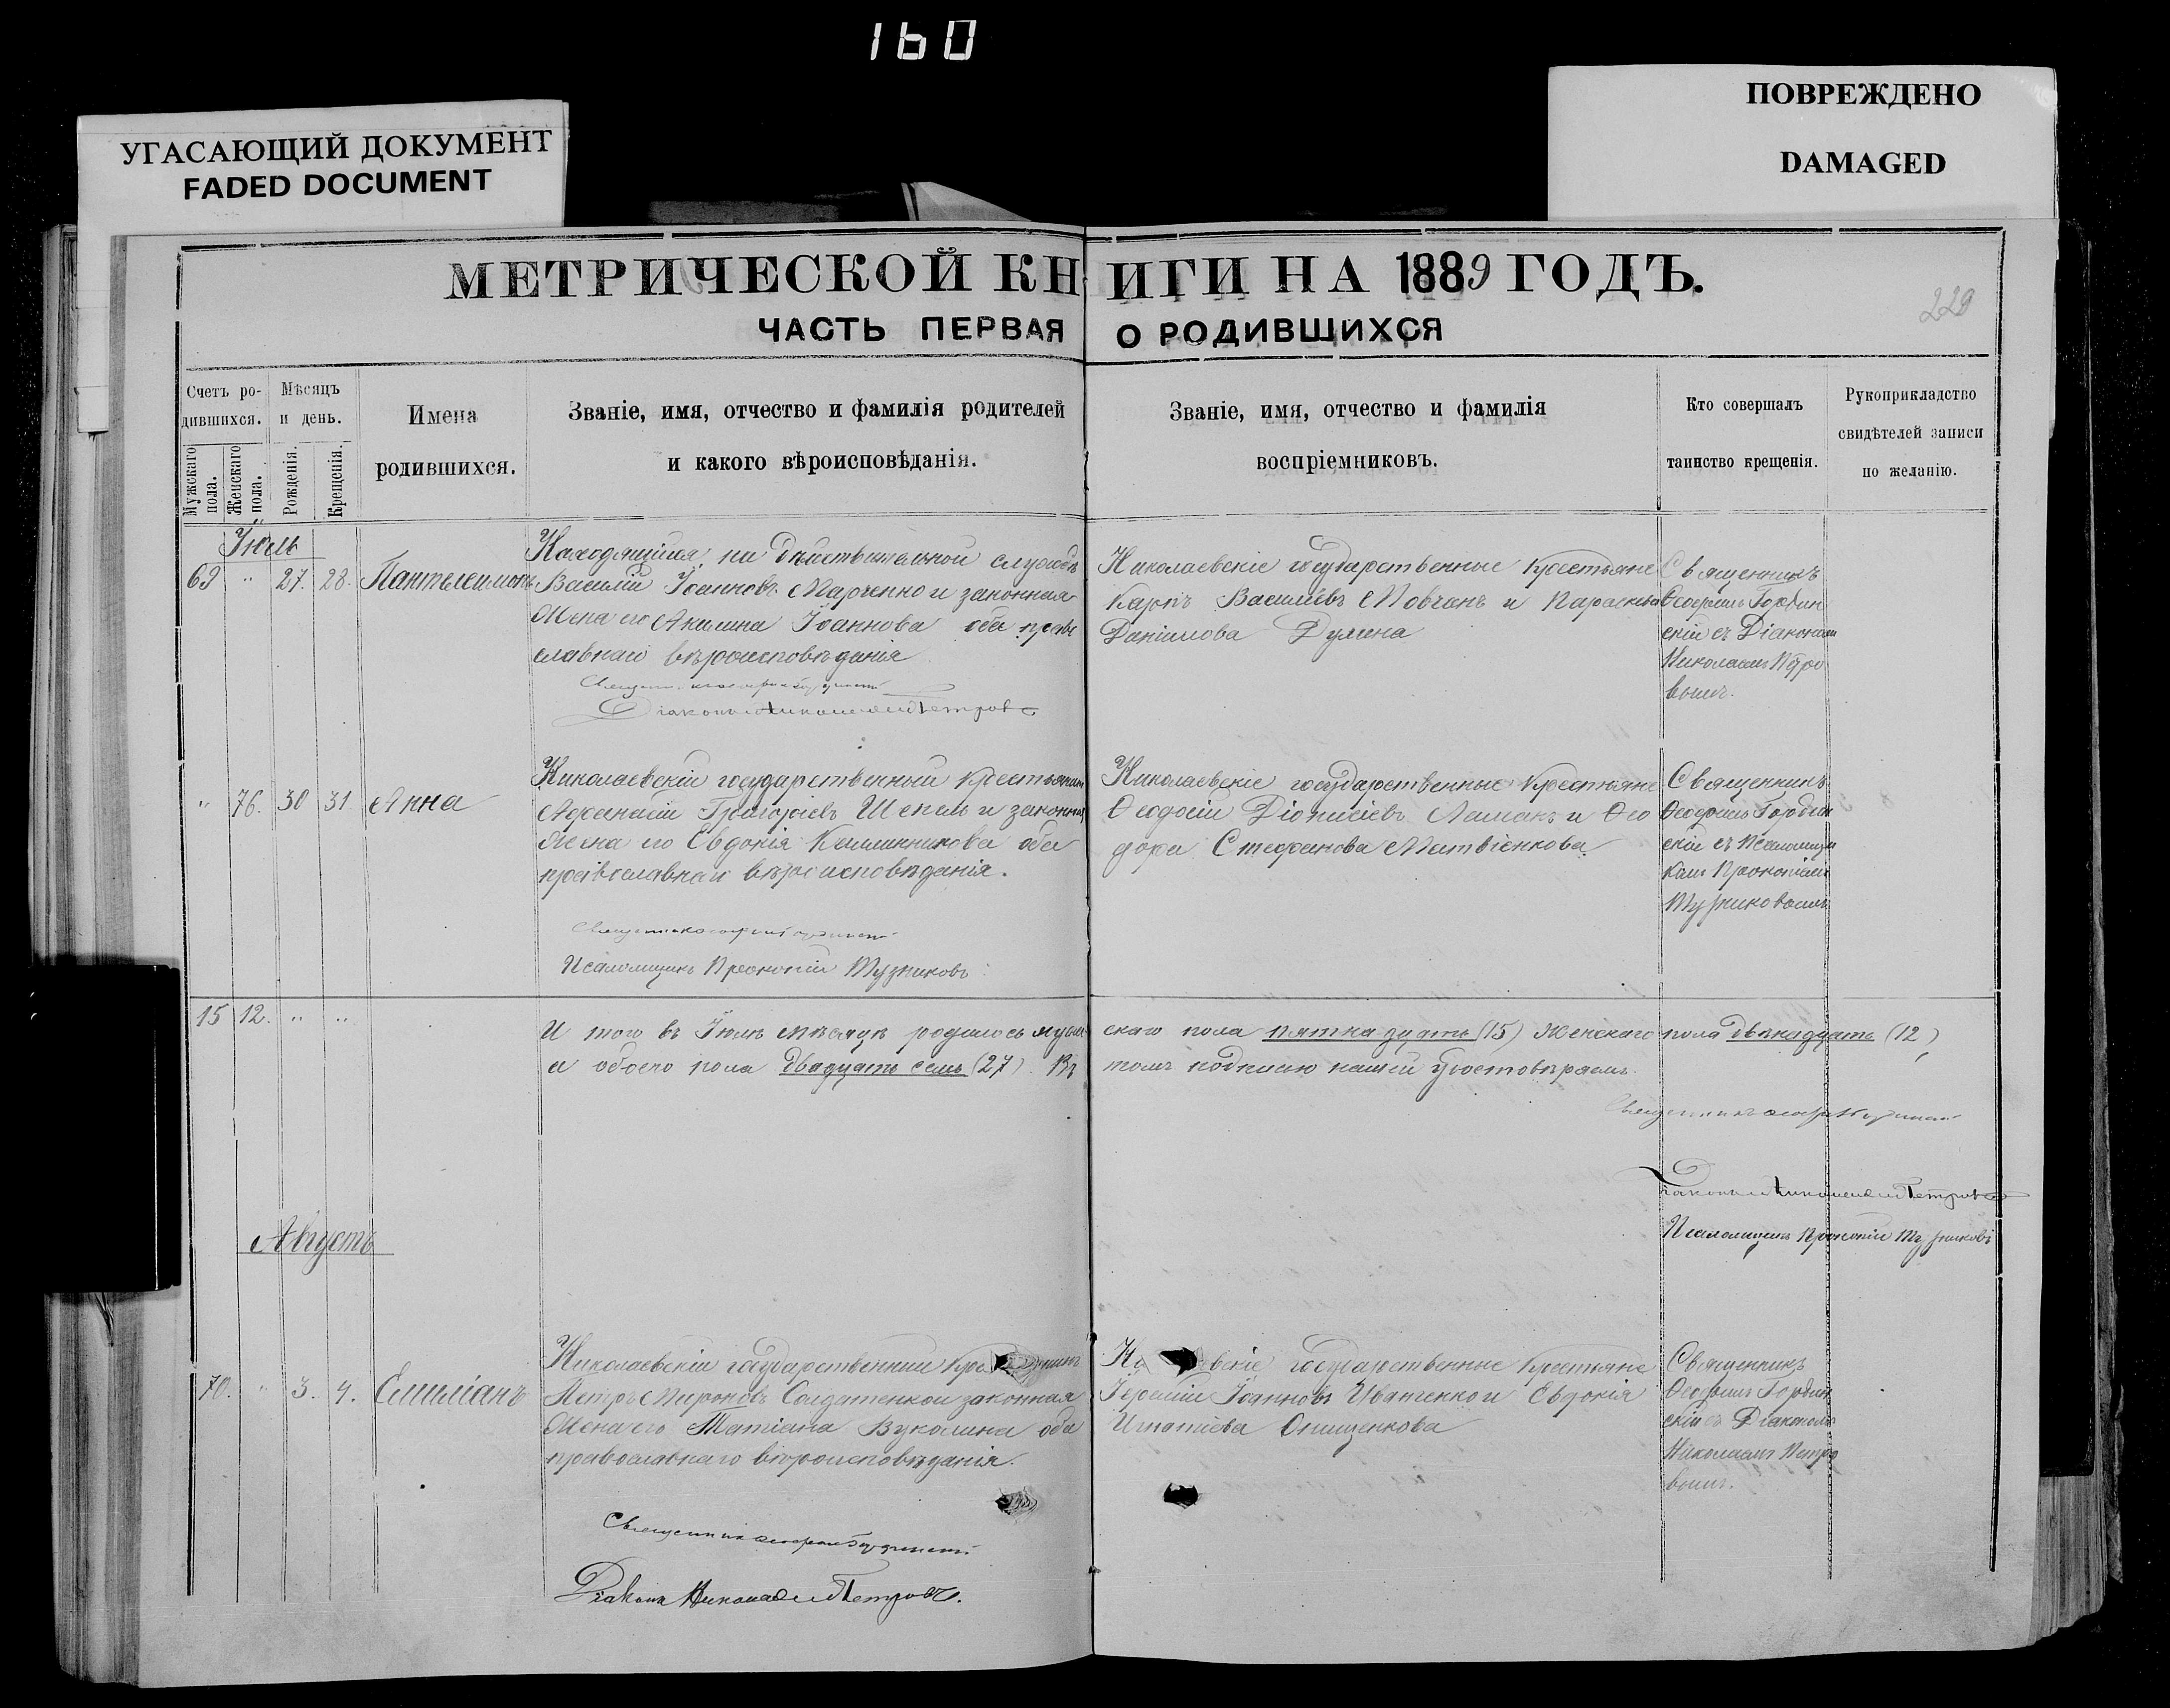 160
УГАСАЮЩИЙ ДОКУМЕНТ
FADED DOCUMENT
ПОВРЕЖДЕНО
DAMAGED
МЕТРИЧЕСКОЙ КНИГИ НА 1889 ГОДЪ.
229
ЧАСТЬ ПЕРВАЯ О РОДИВШИХСЯ
Счетъ ро-
дившихся.
Мужскаго пола.
Женскаго пола.
Мѣсяцъ
и день.
Рожденія.
Крещенія.
Имена
родившихся.
Званіе, имя, отчество и фамилія родителей
и какого вѣроисповѣданія.
Званіе, имя, отчество и фамилія
воспріемниковъ.
Кто совершалъ
таинство крещенія.
Рукоприкладство
свидѣтелей записи
по желанію.
Іюль
69 " 27. 28. Пантелеимонъ
Находящійся на дѣйствительной службѣ
Василій Іоанновъ Марченко и законная
жена его Акилина Іоаннова оба право
славнаго вѣроисповѣданія
Діаконъ Николай Петровъ
Николаевскіе государственные крестьяне
Карпъ Василіевъ Мовчанъ и Параскева
Даніилова Дулина
Священникъ
Гордин
скій съ Діакономъ
Николаемъ Петро
вымъ.
" 76. 30 31 Анна
Николаевскій государственный крестьянинъ
Афанасій Григоріевъ Шепель и законная
жена его Евдокія оба
православнаго вѣроисповѣданія.
Псаломщикъ Прокопій Тузниковъ
Николаевскіе государственные крестьяне
Ѳеодосій Діонисіевъ и Ѳео
дора Стефанова Матвіенкова
Священникъ
Гордин
скій съ Псаломщи
комъ Прокопіемъ
Тузниковымъ
15 12. " "
И того въ Іюлѣ мѣсяцѣ родилось муж
скаго пола пятнадцать (15) женскаго пола двѣнадцать (12)
а обоего пола двадцать семь (27). Въ
томъ подписью нашей удостовѣряемъ
Діаконъ Николай Петровъ
Псаломщикъ Прокопій Тузниковъ
Августъ
70. " 3. 4. Емиліанъ
Николаевскій государственный
Петръ Мироновъ Солдатенко и законная
жена его Татіана Вуколина оба
православнаго вѣроисповѣданія.
Діаконъ Николай Петровъ.
государственные крестьяне
Іеремій Іоанновъ Иванченко и Евдокія
Игнатіева Онищенкова
Священникъ
Гордин
скій съ Діакономъ
Николаемъ Петро
вымъ.